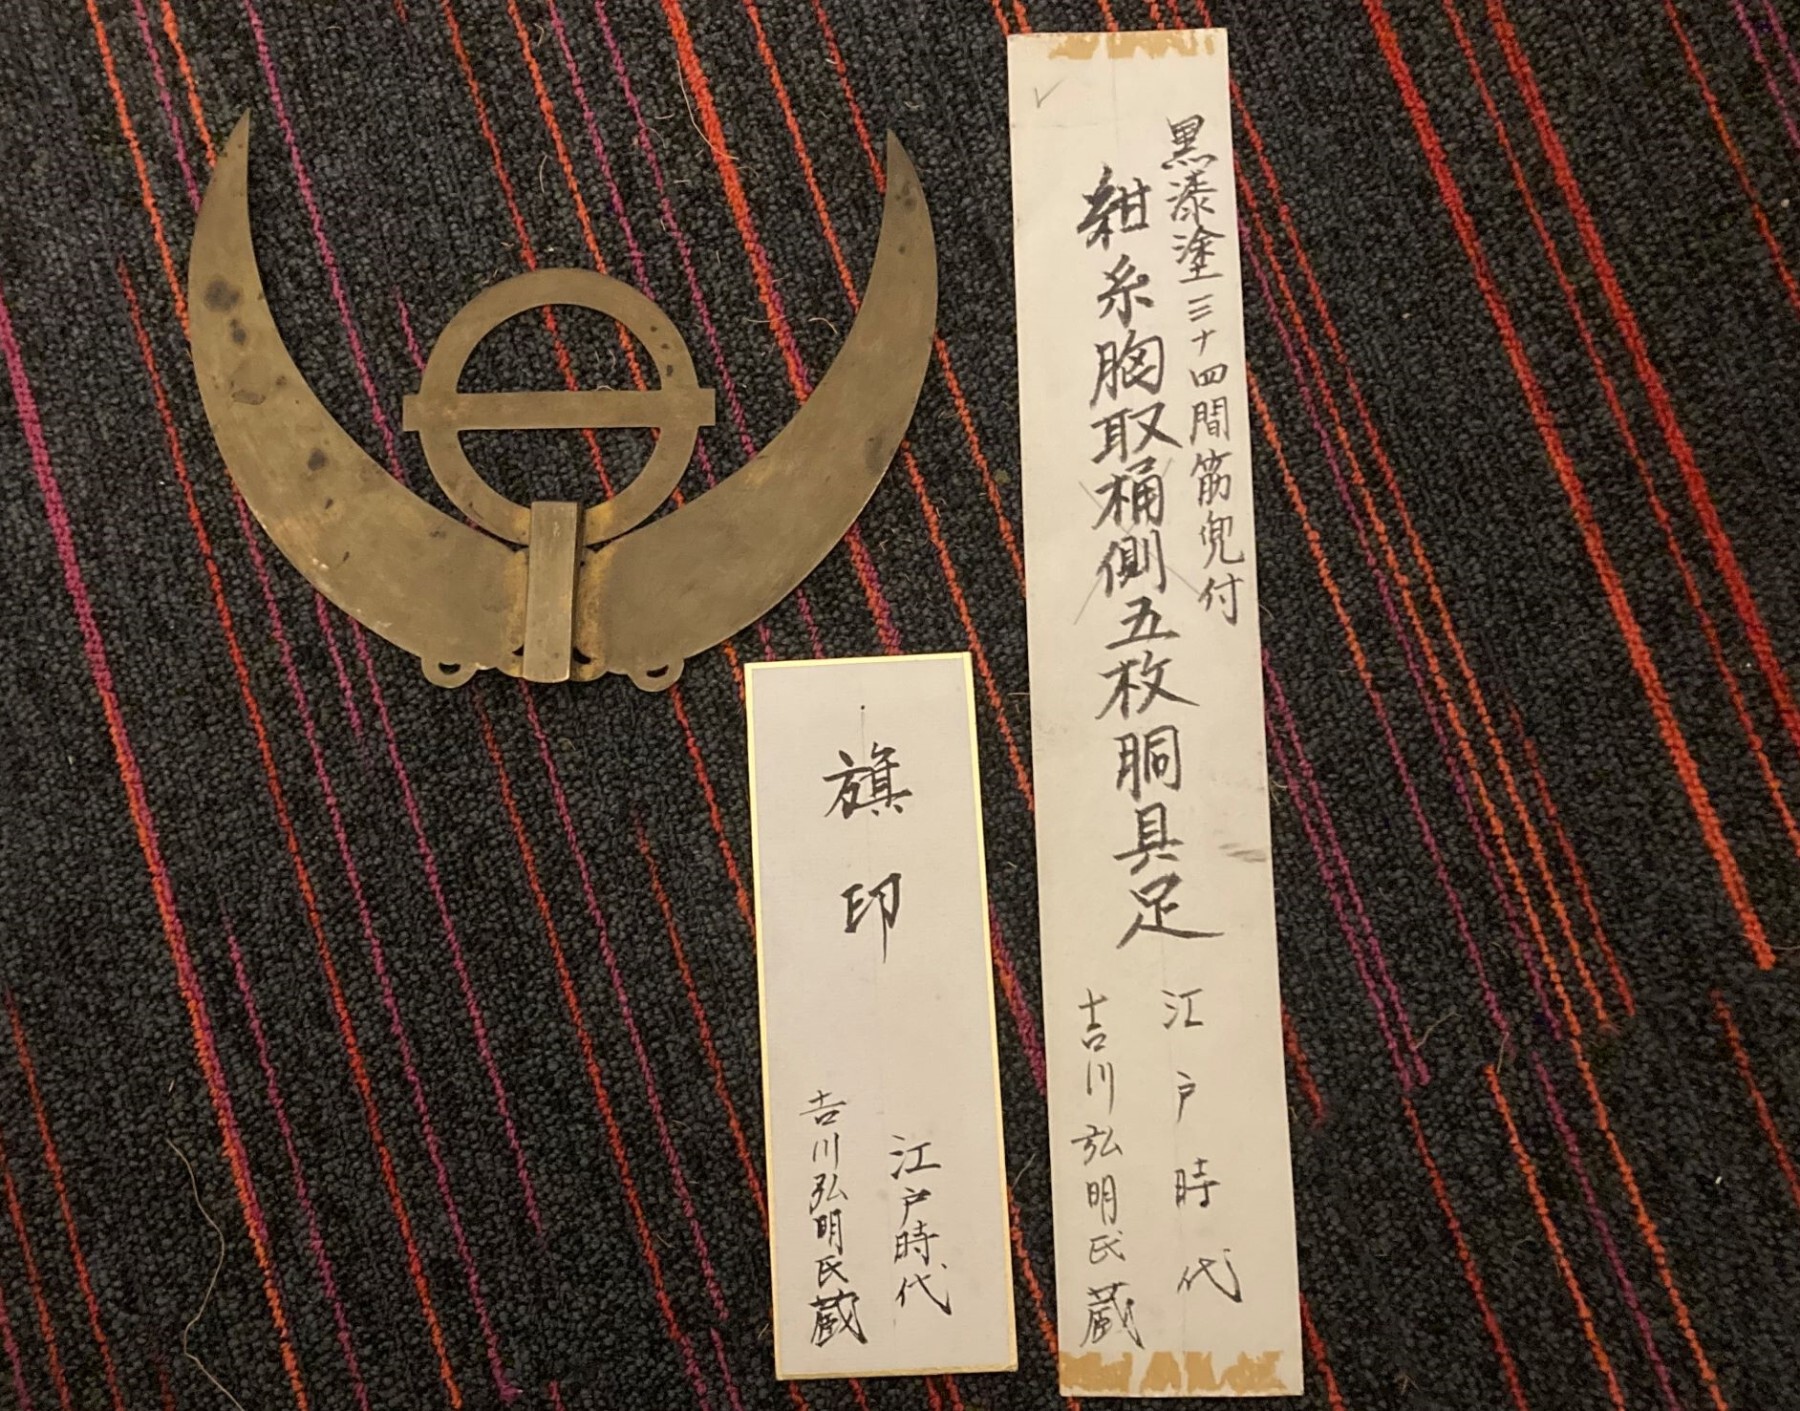 黒漆塗三十四間筋兜付
紺糸胸取桶側五枚胴具足
江戸時代
吉川弘明氏蔵
旗印
江戸時代
吉川弘明氏蔵